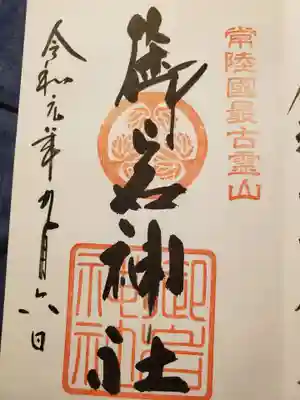 常陸國最古霊山
御岩神社
御岩神社
令和元年九月六日